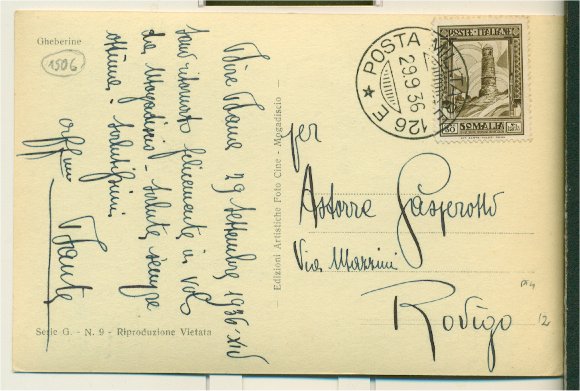 Gheberine
1506
Dire Daua 29 settembre 1936-XIV
sono ritornato felicemente in volo
da Mogadiscio - salute sempre
ottima - salutissimi
aff.mo
Dante
Serie G. - N. 9 - Riproduzione Vietata
Edizioni Artistiche Foto Cine - Mogadiscio
POSTA
29.9.36
126 E
POSTE ITALIANE
SOMALIA
per
Astorre Gasperotto
Via Mazzini
Rovigo
12